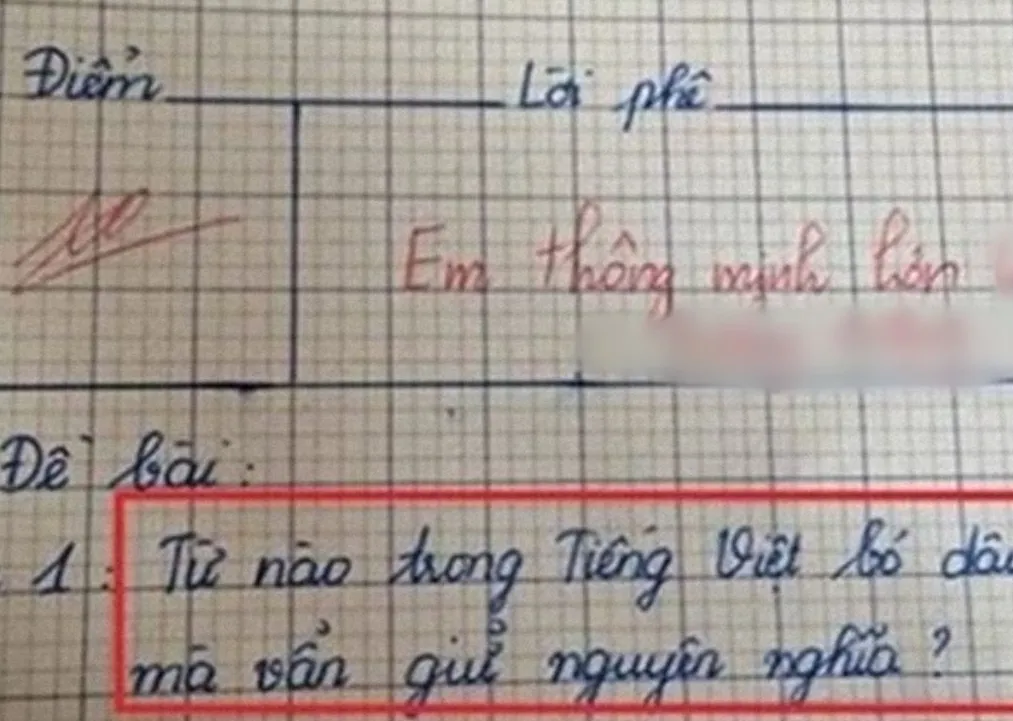 Điểm Lời phê
10 Em thông minh hơn
Đề bài:
1: Từ nào trong Tiếng Việt bỏ dấu
mà vẫn giữ nguyên nghĩa?